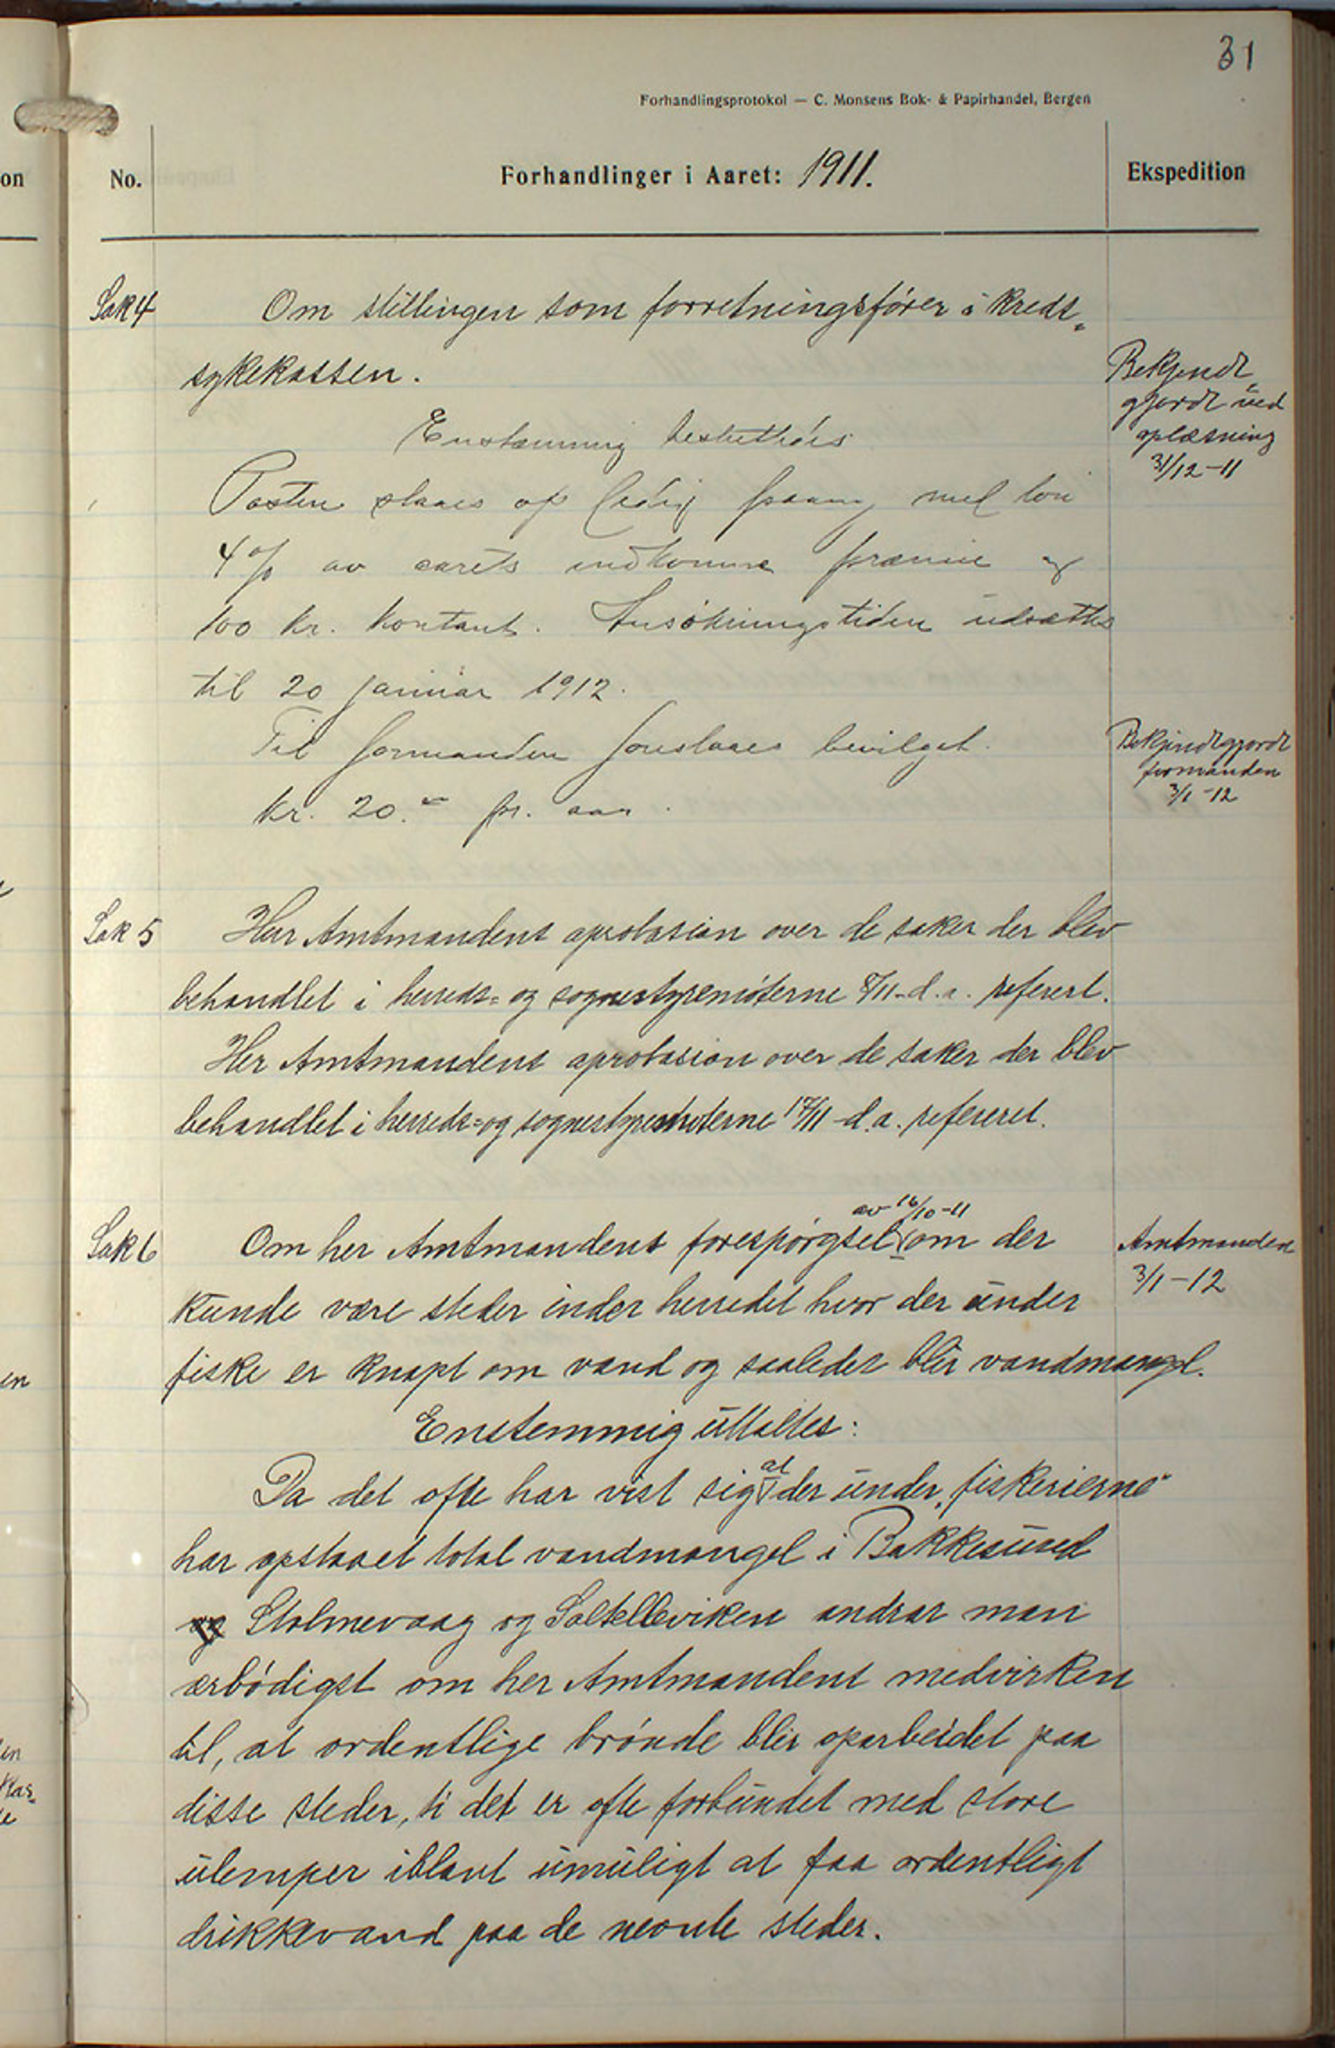 31
Forhandlingsprotokol — C. Monsens Bok- & Papirhandel, Bergen
on
No.
Forhandlinger i Aaret: 1911.
Ekspedition
Sak 4
Om stillingen som forretningsfører i kreds-
sykekassen.
Enstemmig besluttedes
Posten slaaes op ledig paany med løn
4% av aarets indkomne præmie og
100 kr. kontant. Ansökningstiden utsættes
til 20 januar 1912.
Til formanden foreslaaes bevilget
kr. 20.- pr. aar.
Bekjendt
gjordt ved
oplæsning
31/12-11
Bekjendtgjordt
formanden
3/1-12
Sak 5
Herr Amtmandens aprobasion over de saker der blev
behandlet i herreds- og sognestyremøterne 8/11-d.a. referert.
Her Amtmandens aprobasion over de saker der blev
behandlet i herreds- og sognestyremøterne 17/11-d.a. refereret.
Sak 6
Om her Amtmandens forespørgsel av 16/10-11 om der
kunde være steder inder herredet hvor der under
fiske er knapt om vand og saaledes blir vandmangel.
Enstemmig uttaltes:
Da det ofte har vist sig at der under "fiskerierne"
har opstaaet total vandmangel i Bakkesund
og Stolmevaag og Soltelleviken andrar man
ærbødigst om her Amtmandens medvirken
til, at ordentlige brønde blir oparbeidet paa
disse steder, ti det er ofte forbundet med store
ulemper iblant umuligt at faa ordentligt
drikkevand paa de nevnte steder.
Amtmanden
3/1-12
en